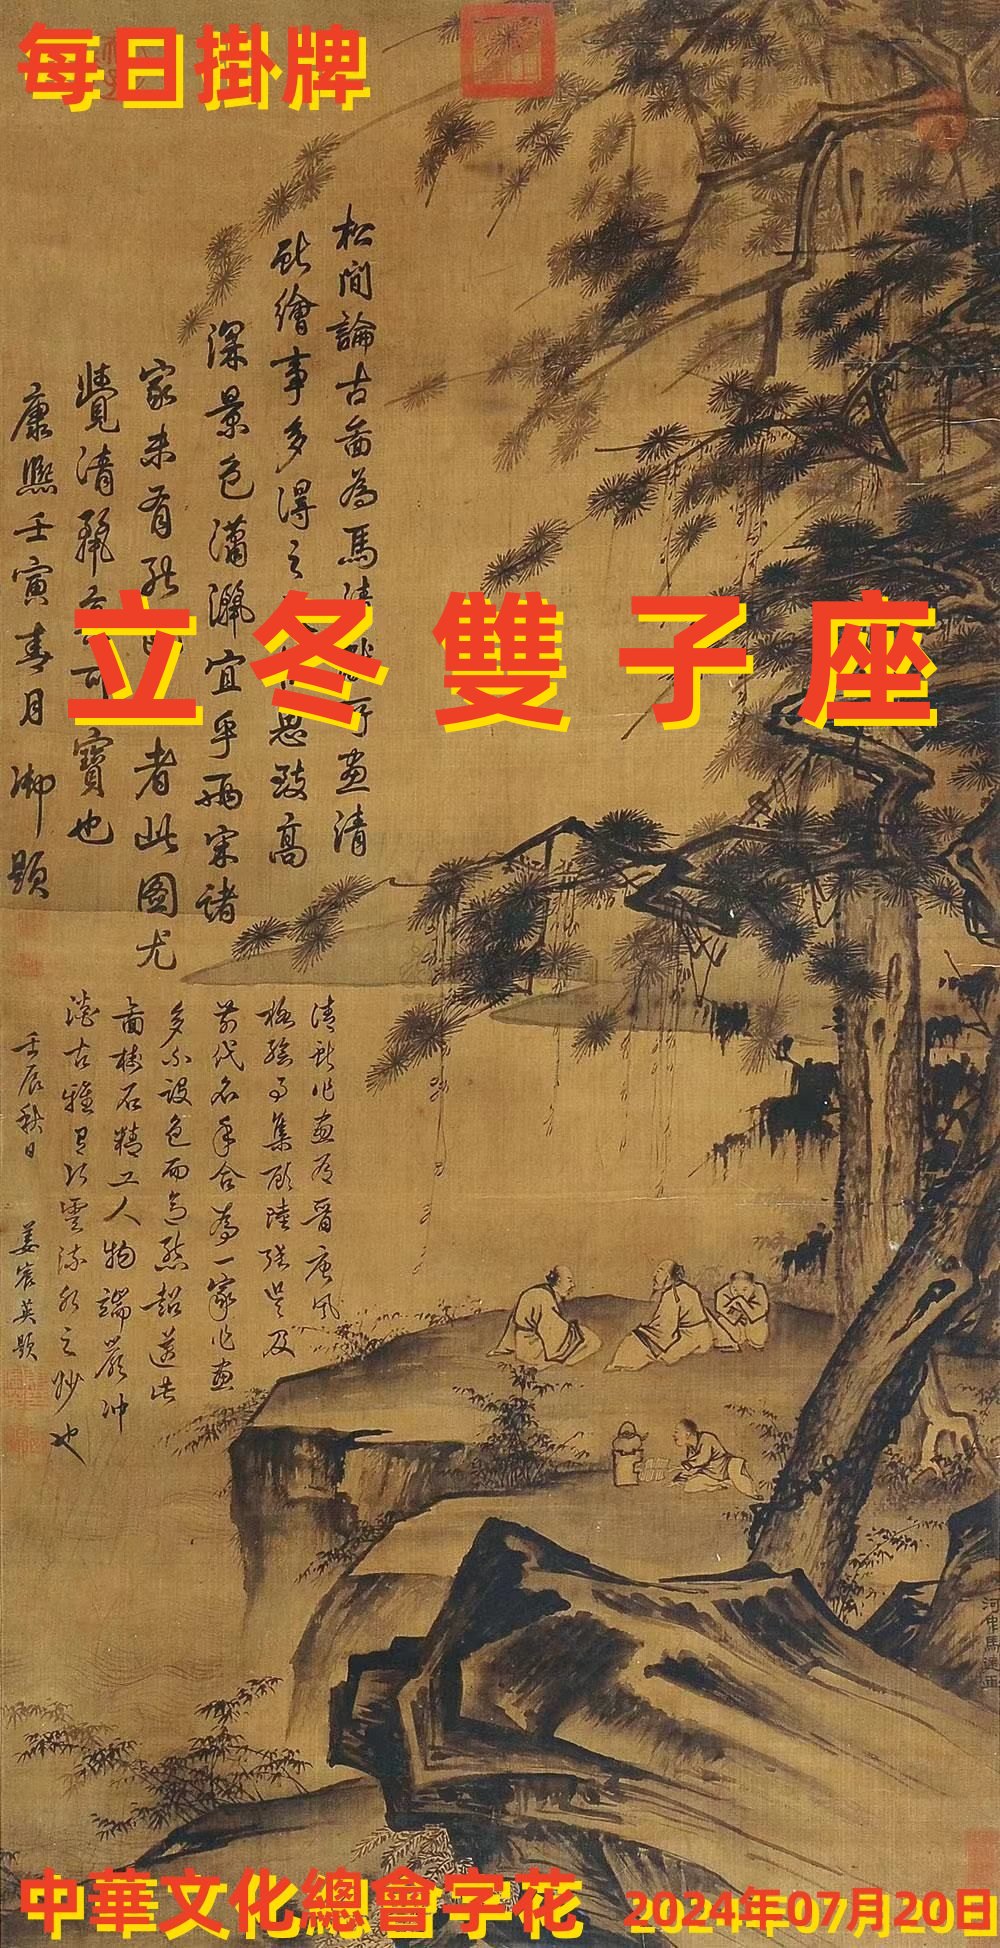 每日掛牌
松間論古畵為馬
畫清
繪事多得之
思致高
深景色瀟灑宜乎兩宋諸
家未有
者此圖尤
覺清
寶也
康熙壬寅春月御題
立冬雙子座
清
作畫有晉唐風
格繪事集顧陸張吳及
前代名手合為一家作畫
多不設色而
超逸
畵樹石精工人物端嚴沖
澹古雅
雲流水之妙也
壬辰秋日
姜宸英題
河中馬遠畫
中華文化總會字花
2024年07月20日